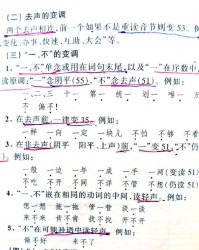 (二)去声的变调
两个去声相连,前一个如果不是重读音节则变53。例
变化、办事、快速、互助、大会”等。
(三)“一、不”的变调
1.“一、不”单念或用在词句末尾,以及“一”在序数中,
读原调:“一”念阴平(55),“不”念去声(51)。例如:
一 二 三 十一 第一 统一 划一 唯一 万
不 偏不!
2. 在去声前,一律变35。例如:
一样 一向 一定 一块儿 不怕 不够 不看 不像
3. 在非去声(阴平 阳平、上声)前,“一”变51,“不”仍
例如:
一般 一边 一年 成一手 一两(变51)
不吃 不开 不同 不详 不管 不想(仍读51)
4.“一、不”嵌在相同的动词中间,读轻声。例如:
想一想 拖一拖 管一管 谈一谈
来不来 肯不肯 找不找 开不开
5.“不”在可能补语中读轻声。例如:
做不好 来不了